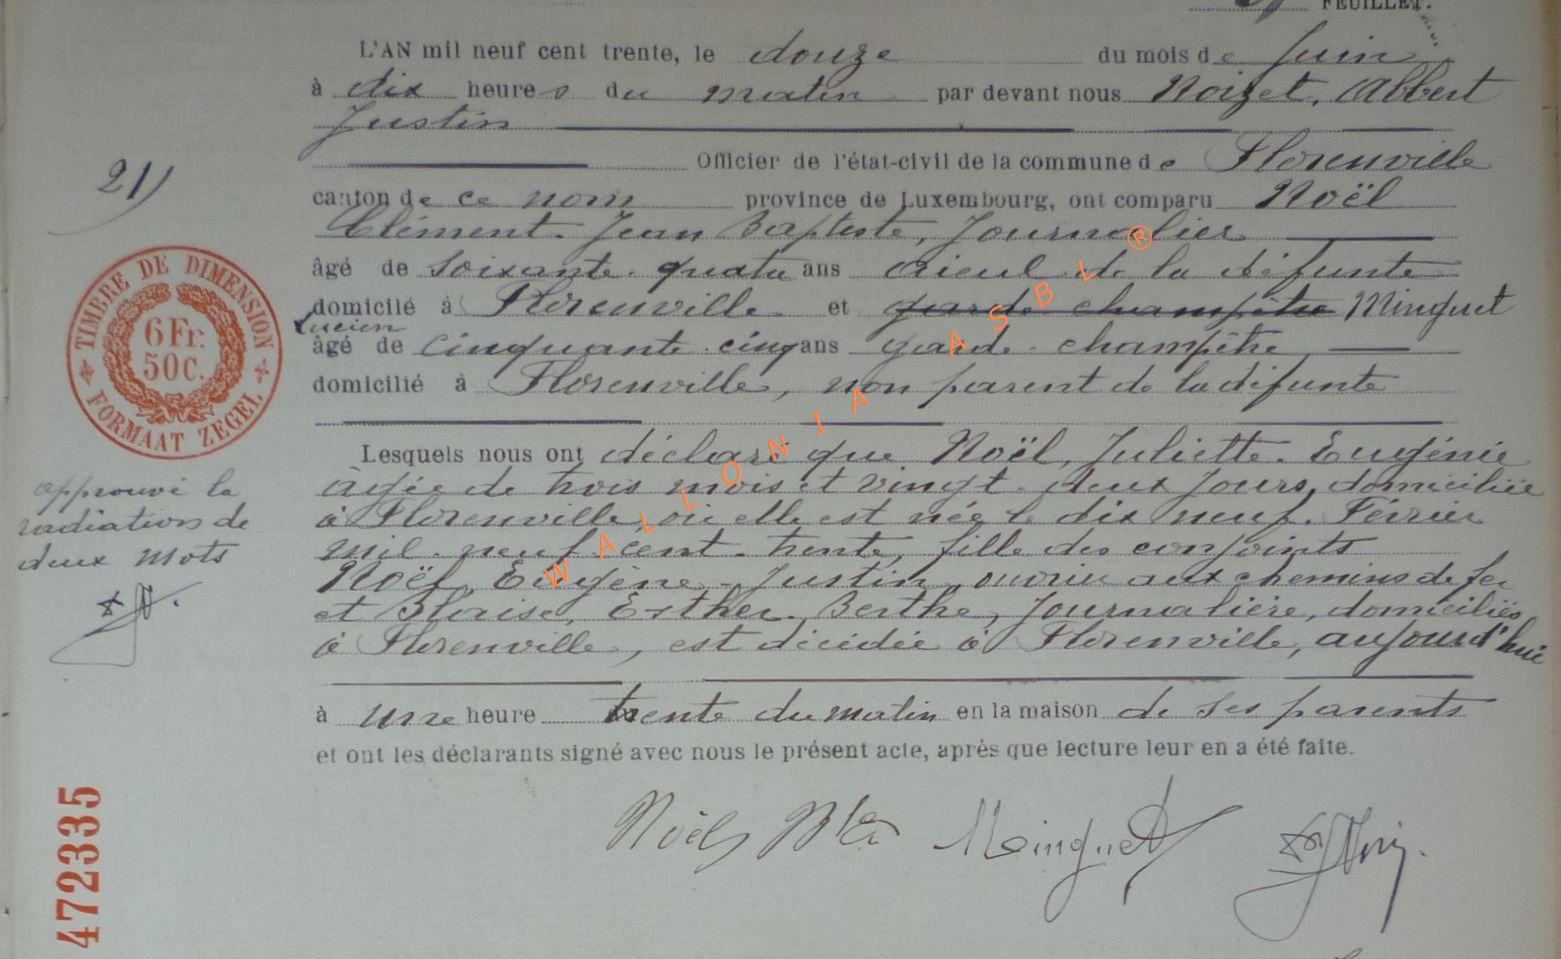 FEUILLET.
L'AN mil neuf cent trente, le douze du mois de Juin
à dix heures du matin par devant nous Noizet, Albert
Justin
Officier de l'état-civil de la commune de Florenville
21)
canton de ce nom province de Luxembourg, ont comparu Noël
Clément. Jean Baptiste, Journalier
âgé de soixante. quatre ans aieul de la défunte
domicilié à Florenville et garde champêtre Minguet
Lucien
âgé de cinquante. cinq ans garde. champêtre,
domicilié à Florenville, non parent de la défunte
TIMBRE DE DIMENSION
6 Fr.
50 C.
FORMAAT ZEGEL
Lesquels nous ont déclaré que Noël, Juliette. Eugénie
âgée de trois mois et vingt. deux jours, domiciliée
à Florenville, où elle est née le dix neuf. Février
mil. neuf. cent. trente, fille des conjoints
Noël, Eugène. Justin, ouvrier aux chemins de fer
et Blaise, Esther. Berthe, Journalière, domiciliés
à Florenville, est décédée à Florenville, aujourd'hui
à une heure trente du matin en la maison de ses parents
et ont les déclarants signé avec nous le présent acte, après que lecture leur en a été faite.
approuvé la
radiation de
deux mots
Noël Minguet
472335
WALLONIA ASBL ®